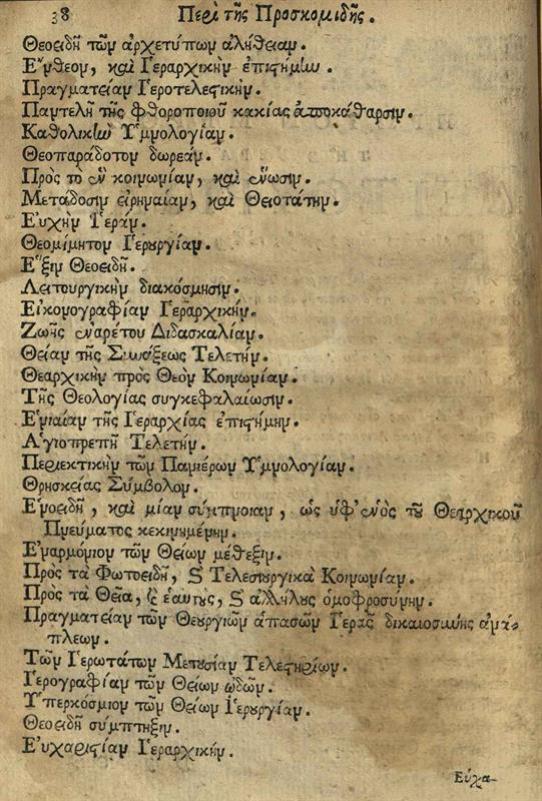 38 Περὶ τῆς Προσκομιδῆς.
Θεοειδῆ τῶν ἀρχετύπων ἀλήθειαν.
Ἔνθεον, καὶ Ἱεραρχικὴν ἐπιστήμην.
Πραγματείαν Ἱεροτελεστικήν.
Παντελῆ τῆς φθοροποιοῦ κακίας ἀποκάθαρσιν.
Καθολικὴν Ὑμνολογίαν.
Θεοπαράδοτον δωρεάν.
Πρὸς τὸ ἓν κοινωνίαν, καὶ ἕνωσιν.
Μετάδοσιν εἰρηναίαν, καὶ Θειοτάτην.
Εὐχὴν Ἱεράν.
Θεομίμητον Ἱερουργίαν.
Ἕξιν Θεοειδῆ.
Λειτουργικὴν διακόσμησιν.
Εἰκονογραφίαν Ἱεραρχικήν.
Ζωῆς ἐναρέτου Διδασκαλίαν.
Θείαν τῆς Συνάξεως Τελετήν.
Θεαρχικὴν πρὸς Θεὸν Κοινωνίαν.
Τῆς Θεολογίας συγκεφαλαίωσιν.
Ἑνιαίαν τῆς Ἱεραρχίας ἐπιστήμην.
Ἁγιοπρεπῆ Τελετήν.
Περιεκτικὴν τῶν Πανιέρων Ὑμνολογίαν.
Θρησκείας Σύμβολον.
Ἑνοειδῆ, καὶ μίαν σύμπνοιαν, ὡς ὑφ' ἑνὸς τοῦ Θεαρχικοῦ
Πνεύματος κεκινημένην.
Ἐναρμόνιον τῶν Θείων μέθεξιν.
Πρὸς τὰ Φωτοειδῆ, καὶ Τελεσιουργικὰ Κοινωνίαν.
Πρὸς τὰ Θεῖα, καὶ ἑαυτοὺς, καὶ ἀλλήλους ὁμοφροσύνην.
Πραγματείαν τῶν Θεουργιῶν ἁπασῶν Ἱερᾶς δικαιοσύνης ἀνά-
πλεων.
Τῶν Ἱερωτάτων Μετουσίαν Τελεστηρίων.
Ἱερογραφίαν τῶν Θείων ᾠδῶν.
Ὑπερκόσμιον τῶν Θείων Ἱερουργίαν.
Θεοειδῆ σύμπτηξιν.
Εὐχαριστίαν Ἱεραρχικήν.
Εὐχα-